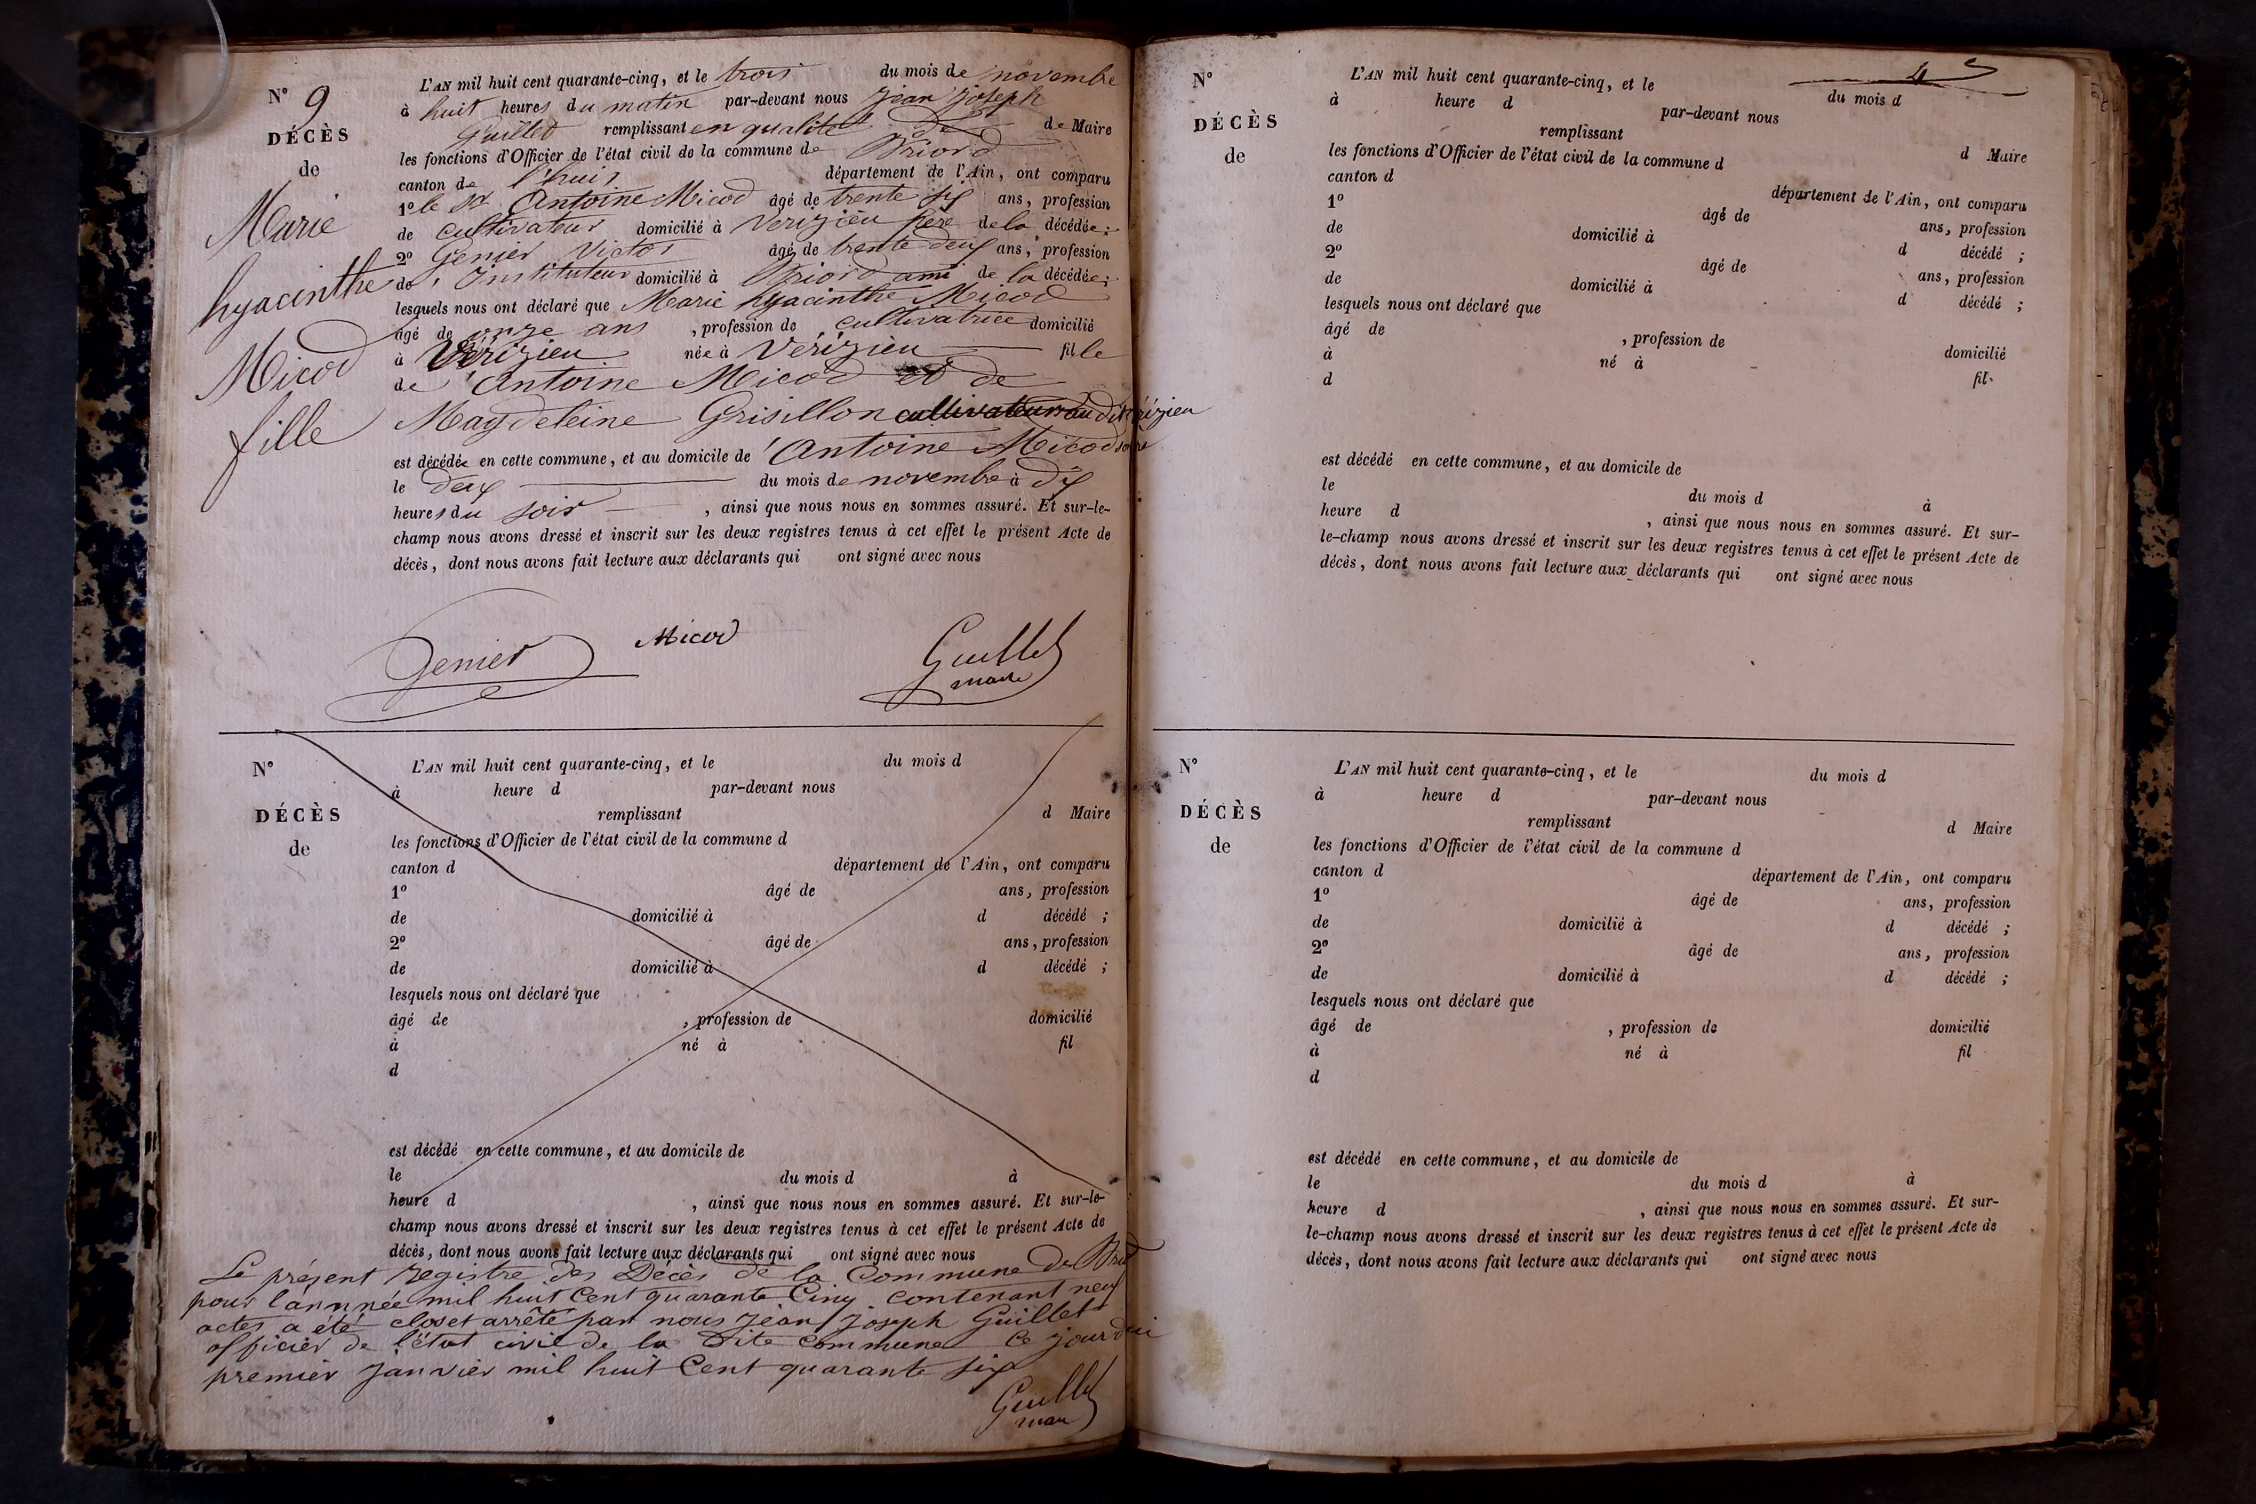 N° 9
DÉCÈS
de
Marie
hyacinthe
Micod
fille
L'AN mil huit cent quarante-cinq, et le trois du mois de novembre
à huit heures du matin par-devant nous Jean Joseph
Guillet remplissant en qualité de Maire
les fonctions d'Officier de l'état civil de la commune de Briord
canton de l'huis département de l'Ain, ont comparu
1° le Sr Antoine Micod âgé de trente six ans, profession
de cultivateur domicilié à Verizieu père de la décédée;
2° Genier Victor âgé de trente deux ans, profession
de instituteur domicilié à Briord ami de la décédée;
lesquels nous ont déclaré que Marie hyacinthe Micod
âgé de onze ans, profession de cultivatrice domicilié
à Vérizieu née à Verizieu fille
de Antoine Micod et de
Magdeleine Grisillon cultivateurs au dit vérizieu
est décédée en cette commune, et au domicile de Antoine Micod
le deux du mois de novembre à dix
heures du soir, ainsi que nous nous en sommes assuré. Et sur-le-
champ nous avons dressé et inscrit sur les deux registres tenus à cet effet le présent Acte de
décès, dont nous avons fait lecture aux déclarants qui ont signé avec nous
Genier Micod Guillet
maire
N°
DÉCÈS
de
L'AN mil huit cent quarante-cinq, et le du mois d
à heure d par-devant nous
remplissant d Maire
les fonctions d'Officier de l'état civil de la commune d
canton d département de l'Ain, ont comparu
1° âgé de ans, profession
de domicilié à d décédé ;
2° âgé de ans, profession
de domicilié à d décédé ;
lesquels nous ont déclaré que
âgé de , profession de domicilié
à né à fil
d
est décédé en cette commune, et au domicile de
le du mois d à
heure d , ainsi que nous nous en sommes assuré. Et sur-le-
champ nous avons dressé et inscrit sur les deux registres tenus à cet effet le présent Acte de
décès, dont nous avons fait lecture aux déclarants qui ont signé avec nous
Le présent registre des Décès de la Commune de Briord
pour l'année mil huit Cent quarante Cinq contenant neuf
actes a été clos et arrêté par nous Jean Joseph Guillet
officier de l'état civil de la dite commune Ce jourdui
premier janvier mil huit Cent quarante six
Guillet
maire
4
N°
DÉCÈS
de
L'AN mil huit cent quarante-cinq, et le du mois d
à heure d par-devant nous
remplissant d Maire
les fonctions d'Officier de l'état civil de la commune d
canton d département de l'Ain, ont comparu
1° âgé de ans, profession
de domicilié à d décédé ;
2° âgé de ans, profession
de domicilié à d décédé ;
lesquels nous ont déclaré que
âgé de , profession de domicilié
à né à fil
d
est décédé en cette commune, et au domicile de
le du mois d à
heure d , ainsi que nous nous en sommes assuré. Et sur-
le-champ nous avons dressé et inscrit sur les deux registres tenus à cet effet le présent Acte de
décès, dont nous avons fait lecture aux déclarants qui ont signé avec nous
N°
DÉCÈS
de
L'AN mil huit cent quarante-cinq, et le du mois d
à heure d par-devant nous
remplissant d Maire
les fonctions d'Officier de l'état civil de la commune d
canton d département de l'Ain, ont comparu
1° âgé de ans, profession
de domicilié à d décédé ;
2° âgé de ans, profession
de domicilié à d décédé ;
lesquels nous ont déclaré que
âgé de , profession de domicilié
à né à fil
d
est décédé en cette commune, et au domicile de
le du mois d à
heure d , ainsi que nous nous en sommes assuré. Et sur-
le-champ nous avons dressé et inscrit sur les deux registres tenus à cet effet le présent Acte de
décès, dont nous avons fait lecture aux déclarants qui ont signé avec nous